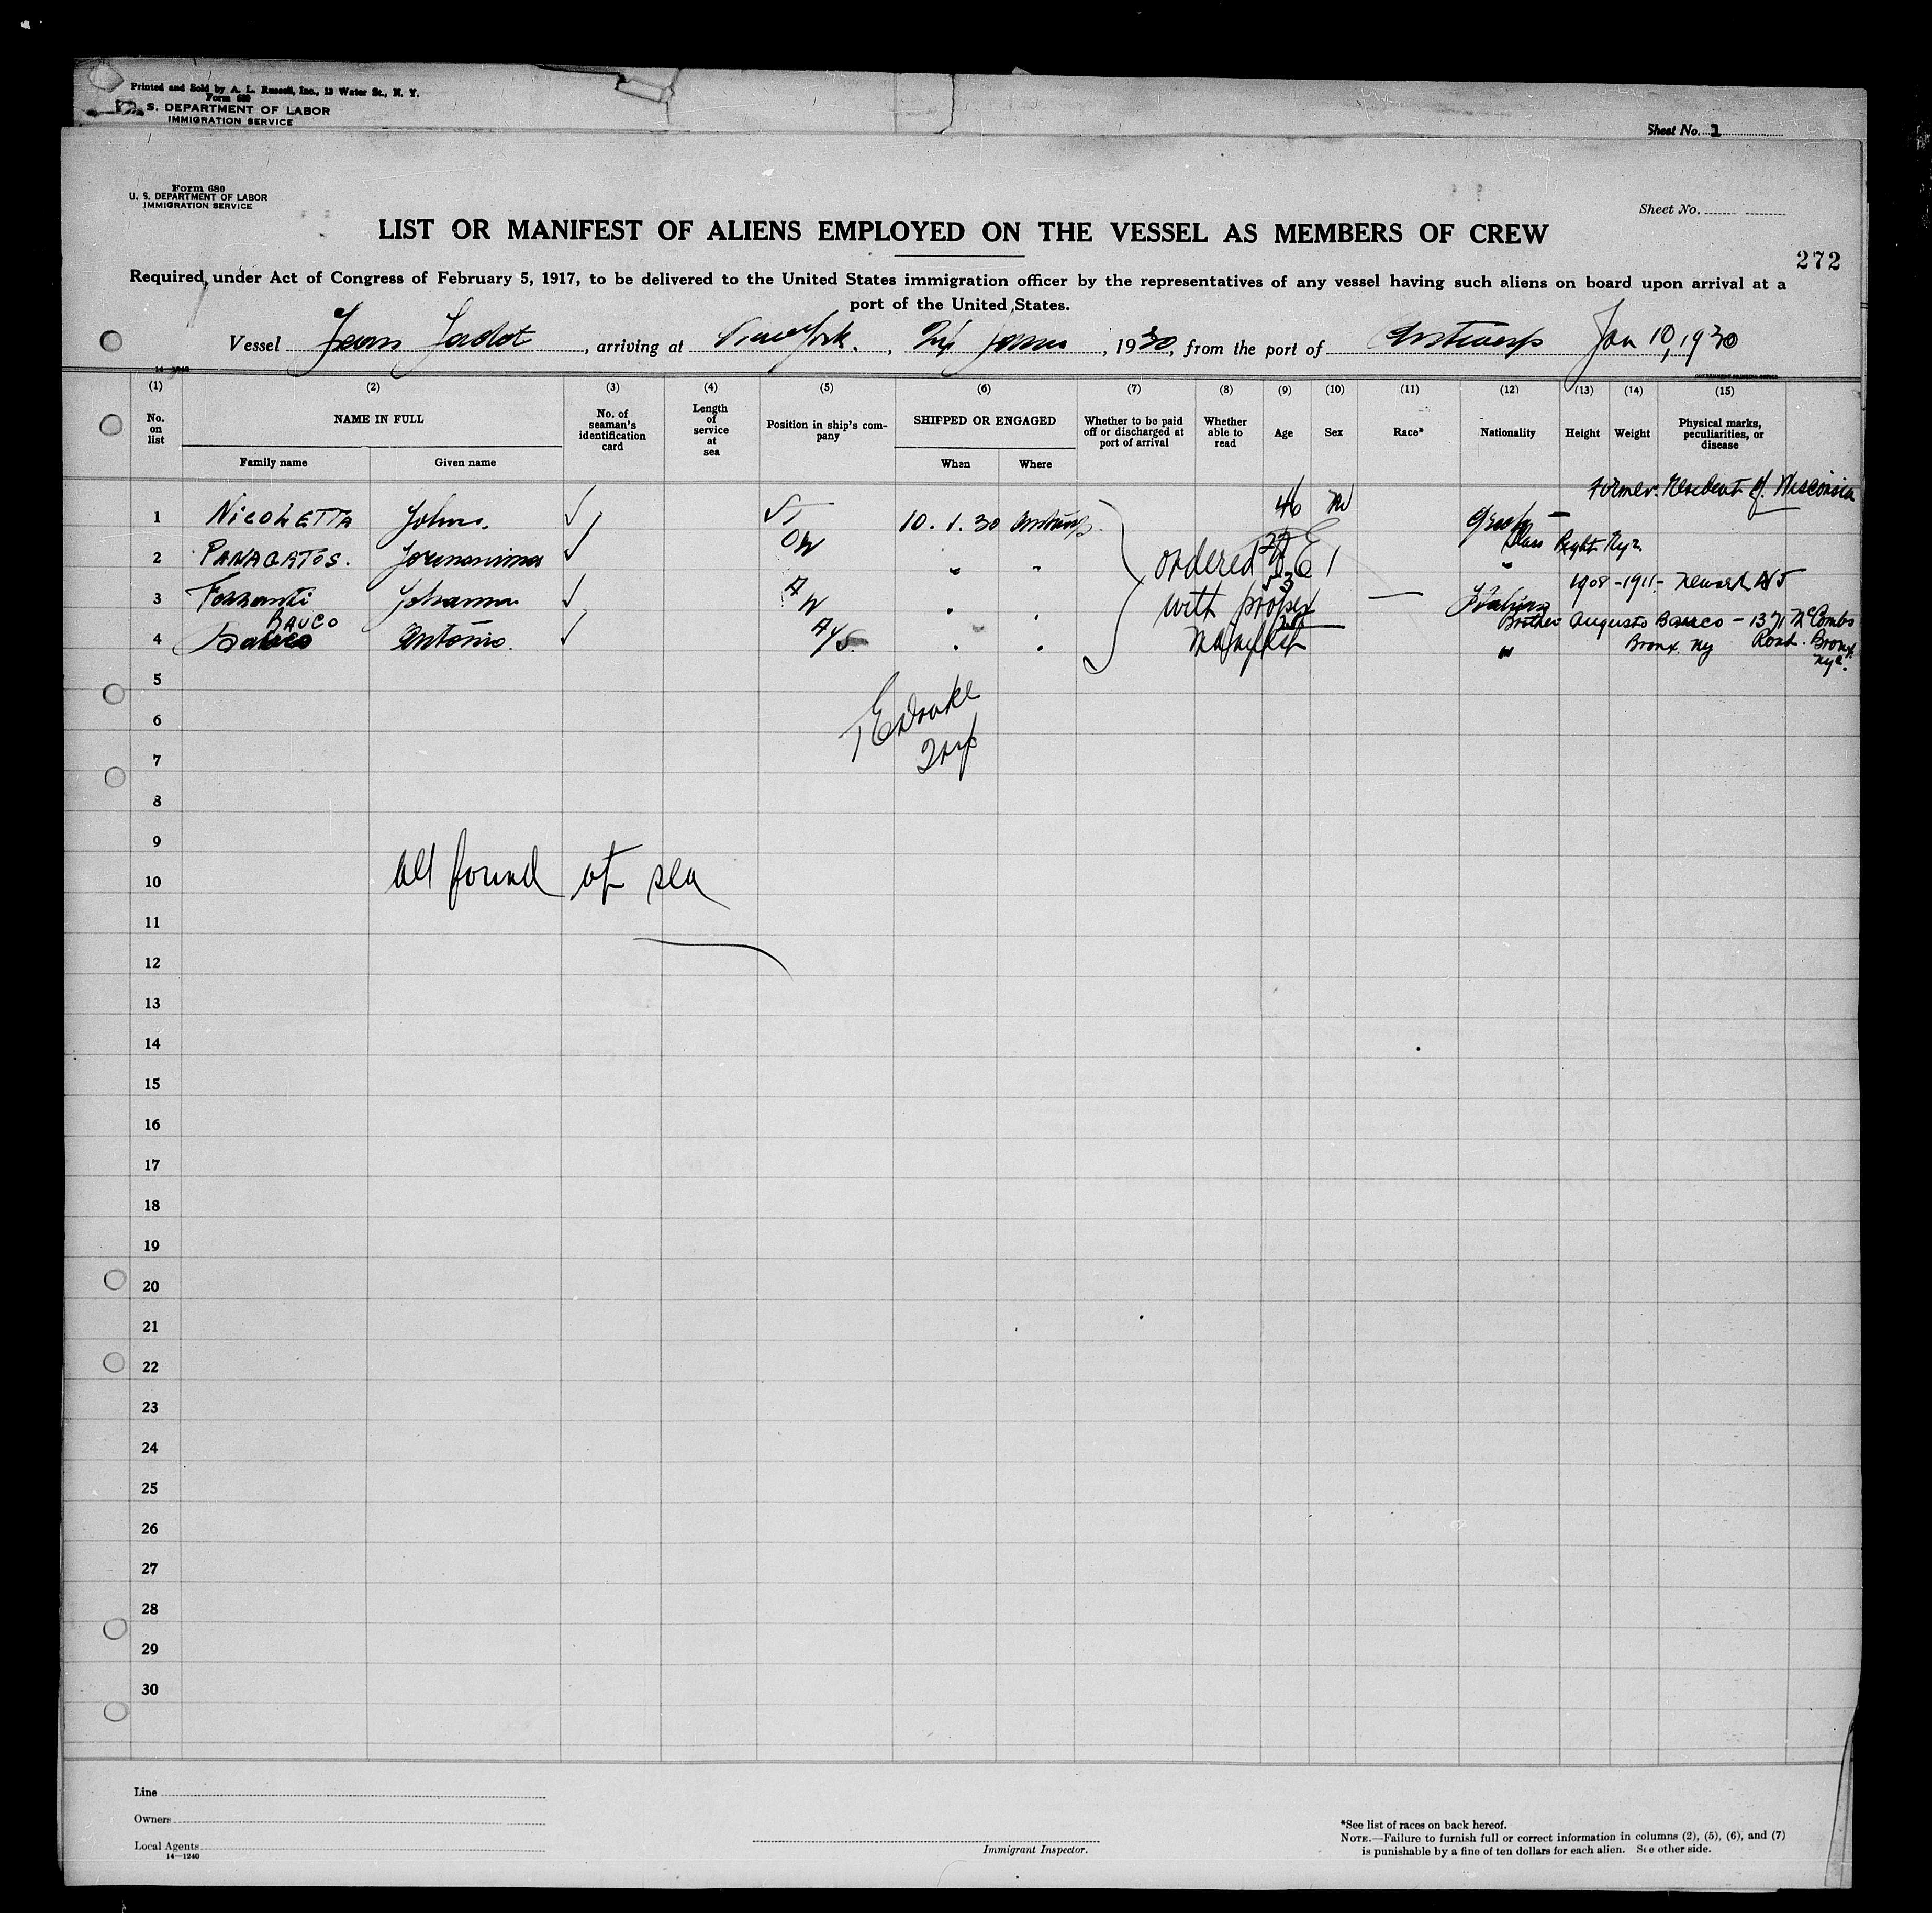 Printed and Sold by A. L. Russell, Inc., 13 Water St., N. Y.
Form 680
S. DEPARTMENT OF LABOR
IMMIGRATION SERVICE
Sheet No. 1
Form 680
U. S. DEPARTMENT OF LABOR
IMMIGRATION SERVICE
Sheet No.
LIST OR MANIFEST OF ALIENS EMPLOYED ON THE VESSEL AS MEMBERS OF CREW
272
Required under Act of Congress of February 5, 1917, to be delivered to the United States immigration officer by the representatives of any vessel having such aliens on board upon arrival at a
port of the United States.
Vessel Jean Jadot, arriving at New York., 1930, from the port of Antwerp Jan 10, 1930
(1) (2) (3) (4) (5) (6) (7) (8) (9) (10) (11) (12) (13) (14) (15)
No. on list
NAME IN FULL
Family name
Given name
No. of seaman's identification card
Length of service at sea
Position in ship's company
SHIPPED OR ENGAGED
When
Where
Whether to be paid off or discharged at port of arrival
Whether able to read
Age
Sex
Race*
Nationality
Height
Weight
Physical marks, peculiarities, or disease
Former Resident of Wisconsin
1 NICOLETTA John. 10. 1. 30 Antwerp 46 M Greek
2 PANAGATOS. " " ordered
3 with proper Italian 1908-1911- Newark NJ
BAUCO
4 Antonio. manifest " Brother Augusto Bauco - 1371 McCombs
Bronx. Ny Road. Bronx
Nyc.
5
6
7
8
9
all found at sea
10
11
12
13
14
15
16
17
18
19
20
21
22
23
24
25
26
27
28
29
30
Line
Owners
Local Agents
14—1240
Immigrant Inspector.
*See list of races on back hereof.
NOTE.—Failure to furnish full or correct information in columns (2), (5), (6), and (7)
is punishable by a fine of ten dollars for each alien. See other side.